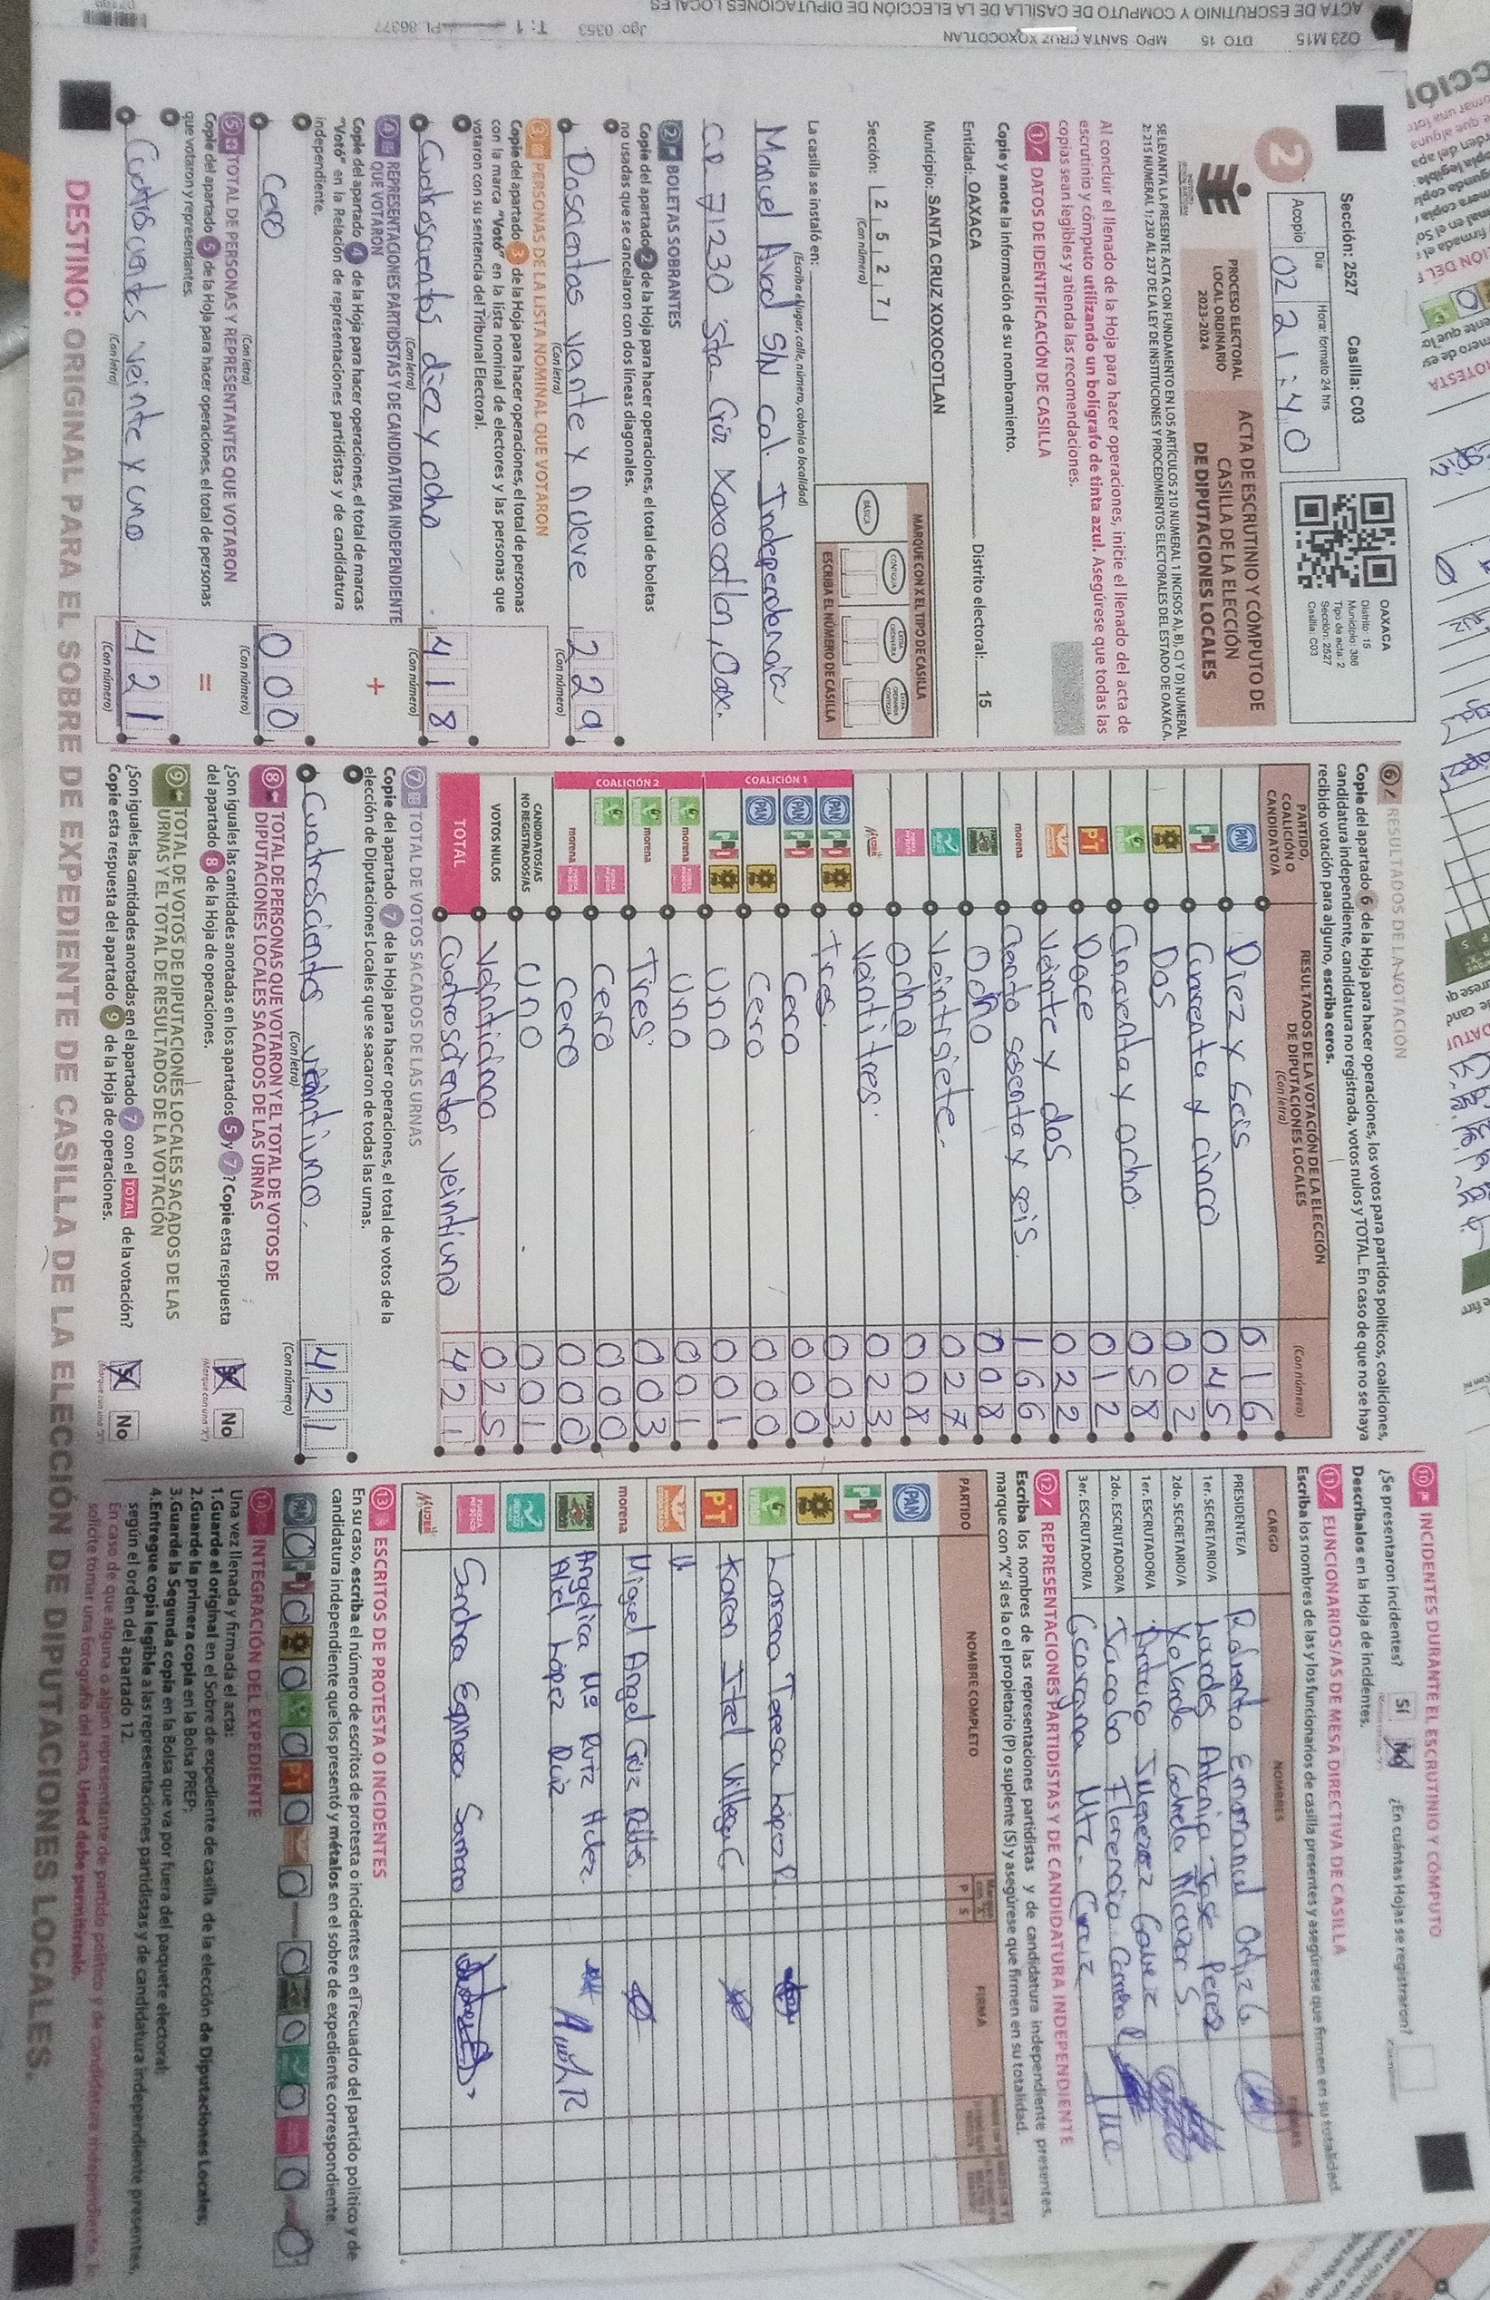 Sección: 2527 Casilla: C03
Día Hora: formato 24 hrs
Acopio 02 21:40
OAXACA
Distrito: 15
Municipio: 386
Tipo de acta: 2
Sección: 2527
Casilla: C03
2
PROCESO ELECTORAL
LOCAL ORDINARIO
2023-2024
ACTA DE ESCRUTINIO Y CÓMPUTO DE
CASILLA DE LA ELECCIÓN
DE DIPUTACIONES LOCALES
SE LEVANTA LA PRESENTE ACTA CON FUNDAMENTO EN LOS ARTÍCULOS 210 NUMERAL 1 INCISOS A), B), C) Y D) NUMERAL
2; 215 NUMERAL 1; 230 AL 237 DE LA LEY DE INSTITUCIONES Y PROCEDIMIENTOS ELECTORALES DEL ESTADO DE OAXACA.
Al concluir el llenado de la Hoja para hacer operaciones, inicie el llenado del acta de
escrutinio y cómputo utilizando un bolígrafo de tinta azul. Asegúrese que todas las
copias sean legibles y atienda las recomendaciones.
1 DATOS DE IDENTIFICACIÓN DE CASILLA
Copie y anote la información de su nombramiento.
Entidad: OAXACA Distrito electoral: 15
Municipio: SANTA CRUZ XOXOCOTLAN
Sección: 2 5 2 7
(Con número)
MARQUE CON X EL TIPO DE CASILLA
BÁSICA CONTIGUA
ESCRIBA EL NÚMERO DE CASILLA
La casilla se instaló en:
(Escriba el lugar, calle, número, colonia o localidad)
Manuel Avad S/N col. Independencia
C.P 71230 Sta Crúz Xoxocotlan, Oax.
2 BOLETAS SOBRANTES
Copie del apartado 2 de la Hoja para hacer operaciones, el total de boletas
no usadas que se cancelaron con dos líneas diagonales.
Doscientos veinte y nueve 229
(Con letra) (Con número)
3 PERSONAS DE LA LISTA NOMINAL QUE VOTARON
Copie del apartado 3 de la Hoja para hacer operaciones, el total de personas
con la marca "Votó" en la lista nominal de electores y las personas que
votaron con su sentencia del Tribunal Electoral.
Cuatroscientos diez y ocho 418
(Con letra) (Con número)
4 REPRESENTACIONES PARTIDISTAS Y DE CANDIDATURA INDEPENDIENTE
QUE VOTARON
+
Copie del apartado 4 de la Hoja para hacer operaciones, el total de marcas
"Votó" en la Relación de representaciones partidistas y de candidatura
independiente.
Cero 000
(Con letra) (Con número)
5 TOTAL DE PERSONAS Y REPRESENTANTES QUE VOTARON
=
Copie del apartado 5 de la Hoja para hacer operaciones, el total de personas
que votaron y representantes.
Cuatroscientos veinte y uno 421
(Con letra) (Con número)
6 RESULTADOS DE LA VOTACIÓN
Copie del apartado 6 de la Hoja para hacer operaciones, los votos para partidos políticos, coaliciones,
candidatura independiente, candidatura no registrada, votos nulos y TOTAL. En caso de que no se haya
recibido votación para alguno, escriba ceros.
PARTIDO,
COALICIÓN O
CANDIDATO/A
RESULTADOS DE LA VOTACIÓN DE LA ELECCIÓN
DE DIPUTACIONES LOCALES
(Con letra) (Con número)
PAN Diez y seis 016
PRI Cuarenta y cinco 045
Dos 002
Cincuenta y ocho 058
PT Doce 012
Veinte y dos 022
morena Ciento sesenta y seis. 166
Ocho 008
Veintisiete. 027
Ocho 008
MUJER Veintitres. 023
COALICIÓN 1
PAN PRI Tres. 003
PAN PRI Cero 000
PAN Cero 000
PRI Uno 001
COALICIÓN 2
morena Uno 001
morena Tres. 003
Cero 000
morena Cero 000
CANDIDATOS/AS
NO REGISTRADOS/AS Uno 001
VOTOS NULOS Veinticinco 025
TOTAL Cuatroscientos veintiuno 421
7 TOTAL DE VOTOS SACADOS DE LAS URNAS
Copie del apartado 7 de la Hoja para hacer operaciones, el total de votos de la
elección de Diputaciones Locales que se sacaron de todas las urnas.
Cuatroscientos veintiuno. 421
(Con letra) (Con número)
8 TOTAL DE PERSONAS QUE VOTARON Y EL TOTAL DE VOTOS DE
DIPUTACIONES LOCALES SACADOS DE LAS URNAS
¿Son iguales las cantidades anotadas en los apartados 5 y 7? Copie esta respuesta
del apartado 8 de la Hoja de operaciones.
No
(Marque con una "X")
9 TOTAL DE VOTOS DE DIPUTACIONES LOCALES SACADOS DE LAS
URNAS Y EL TOTAL DE RESULTADOS DE LA VOTACIÓN
¿Son iguales las cantidades anotadas en el apartado 7 con el TOTAL de la votación?
Copie esta respuesta del apartado 9 de la Hoja de operaciones.
No
10 INCIDENTES DURANTE EL ESCRUTINIO Y CÓMPUTO
¿Se presentaron incidentes? Sí No ¿En cuántas Hojas se registraron?
Descríbalos en la Hoja de incidentes.
11 FUNCIONARIOS/AS DE MESA DIRECTIVA DE CASILLA
Escriba los nombres de las y los funcionarios de casilla presentes y asegúrese que firmen en su totalidad.
CARGO NOMBRES
PRESIDENTE/A Roberto Emmanuel Ortiz G
1er. SECRETARIO/A Lourdes Antonia José Perez
2do. SECRETARIO/A Yolanda Gabriela Alcazar S.
1er. ESCRUTADOR/A
2do. ESCRUTADOR/A Jacobo Florencio
3er. ESCRUTADOR/A Georgina Mtz. Cruz
12 REPRESENTACIONES PARTIDISTAS Y DE CANDIDATURA INDEPENDIENTE
Escriba los nombres de las representaciones partidistas y de candidatura independiente presentes,
marque con "X" si es la o el propietario (P) o suplente (S) y asegúrese que firmen en su totalidad.
PARTIDO NOMBRE COMPLETO P S FIRMA
PAN
PRI
Lorena Teresa López R
PT Karen Itzel Villegas C
morena Miguel Angel Crúz
Angelica Ma Rutz Hdez.
Abiel López Ruiz
Sandra Espinoza Samano
MUJER
13 ESCRITOS DE PROTESTA O INCIDENTES
En su caso, escriba el número de escritos de protesta o incidentes en el recuadro del partido político y de
candidatura independiente que los presentó y métalos en el sobre de expediente correspondiente.
14 INTEGRACIÓN DEL EXPEDIENTE
Una vez llenada y firmada el acta:
1.Guarde el original en el Sobre de expediente de casilla de la elección de Diputaciones Locales;
2.Guarde la primera copia en la Bolsa PREP;
3.Guarde la Segunda copia en la Bolsa que va por fuera del paquete electoral;
4.Entregue copia legible a las representaciones partidistas y de candidatura independiente presentes,
según el orden del apartado 12.
En caso de que alguna o algún representante de partido político y de candidatura independiente, le
solicite tomar una fotografía del acta, Usted debe permitírselo.
DESTINO: ORIGINAL PARA EL SOBRE DE EXPEDIENTE DE CASILLA DE LA ELECCIÓN DE DIPUTACIONES LOCALES.
O23 M15 DTO 15 MPO SANTA CRUZ XOXOCOTLAN
Jgo 0353 T: 1 PL 86377
ACTA DE ESCRUTINIO Y COMPUTO DE CASILLA DE LA ELECCIÓN DE DIPUTACIONES LOCALES